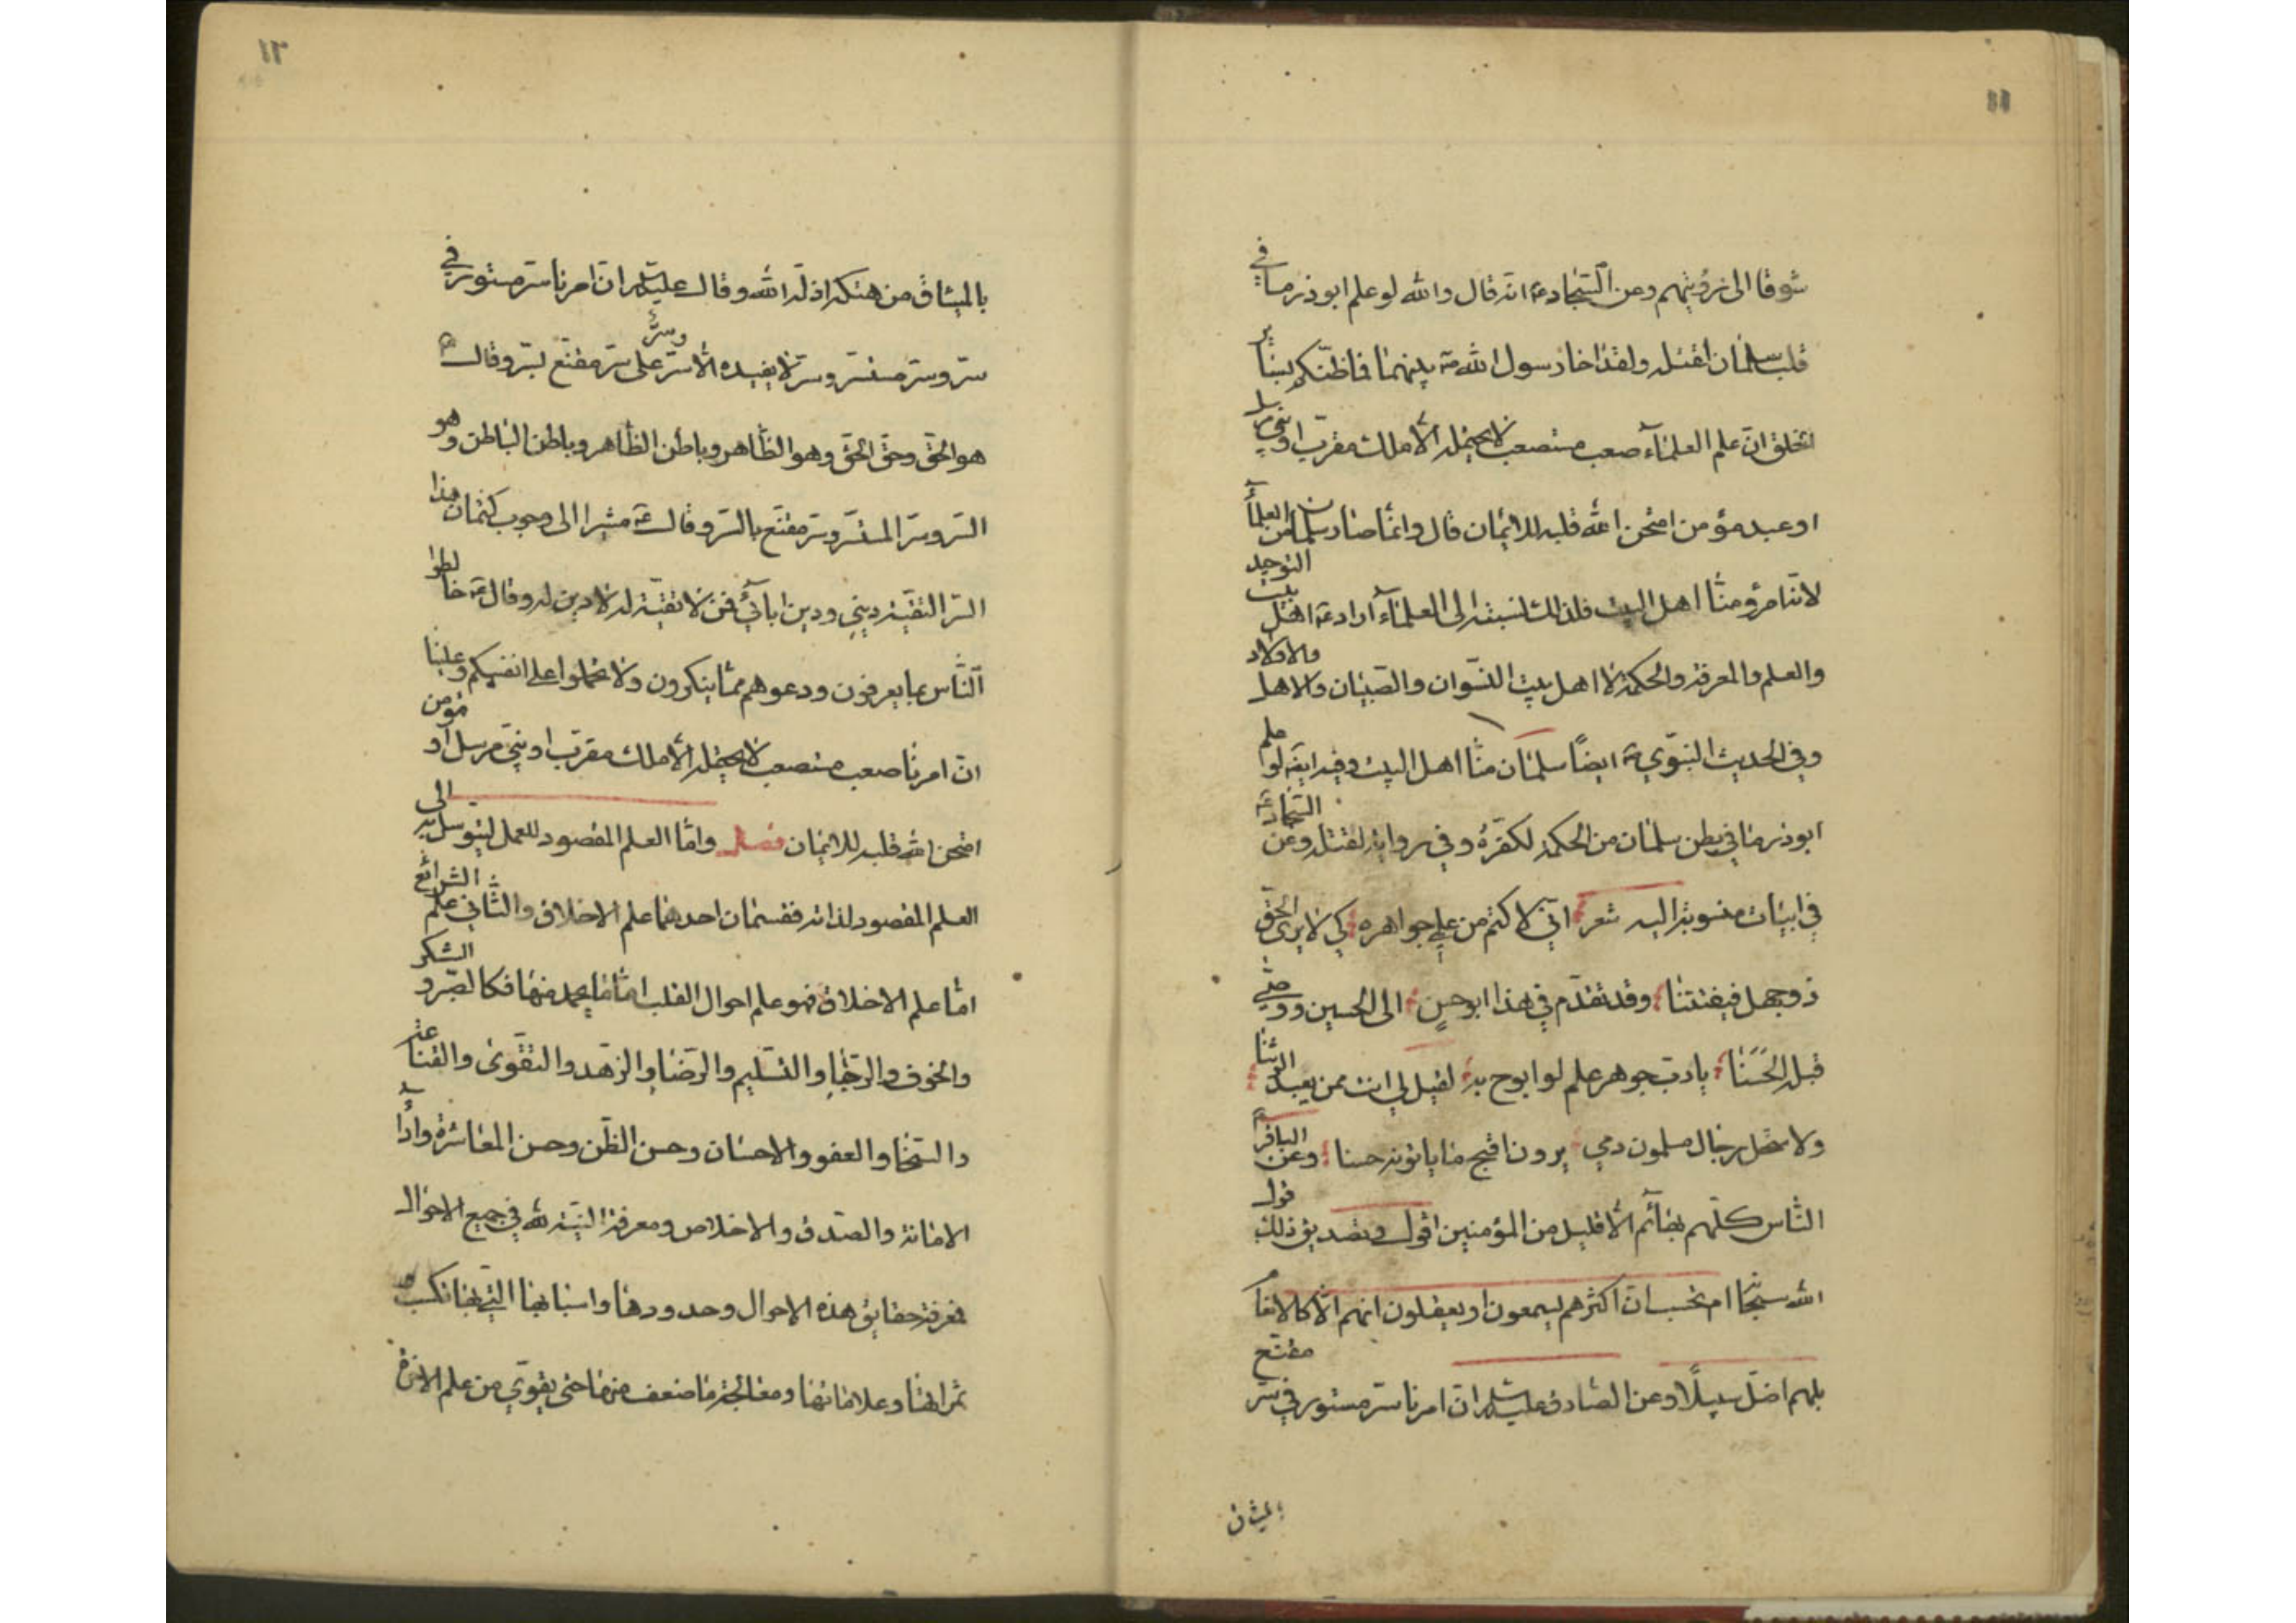 شوقا الى رؤيتهم وعن السجاد ع انه قال والله لو علم ابوذر ما في
قلب سلمان لقتله ولقد اخا رسول الله ص بينهما فما ظنكم بسائر
الخلق ان علم العلماء صعب مستصعب لا يحتمله الا ملك مقرب او نبي مرسل
او عبد مؤمن امتحن الله قلبه للايمان قال وانما صار سلمان من العلماء
لانه امرؤ منا اهل البيت فلذلك نسبته الى العلماء اراد ع اهل بيت التوحيد
والعلم والمعرفة والحكمة لا اهل بيت النسوان والصبيان والاهل والاولاد
وفي الحديث النبوي ص ايضا سلمان منا اهل البيت وفيه ايضا لو علم
ابوذر ما في بطن سلمان من الحكمة لكفره وفي رواية لقتله وعن السجاد ع
في ابيات منسوبة اليه شعر اني لاكتم من علمي جواهره كي لا يرى الحق
ذو جهل فيفتتنا وقد تقدم في هذا ابو حسن الى الحسين ووصى
قبله الحسنا يا رب جوهر علم لو ابوح به لقيل لي انت ممن يعبد الوثنا
ولاستحل رجال مسلمون دمي يرون اقبح ما ياتونه حسنا وعن الباقر ع
الناس كلهم بهائم الا قليل من المؤمنين اقول وتصديق ذلك قول
الله سبحانه ام تحسب ان اكثرهم يسمعون او يعقلون انهم الا كالانعام
بل هم اضل سبيلا وعن الصادق عليه السلام ان امرنا سر مستور في سر مقنع
بالميثاق
بالميثاق من هتكه اذله الله وقال عليه السلام ان امرنا سر مستور في
سر وسر مستسر وسر لا يفيده الا سر وسر على سر مقنع بسر وقال ع
هو الحق وحق الحق وهو الظاهر وباطن الظاهر وباطن الباطن وهو
السر وسر المستسر وسر مقنع بالسر وقال ع مشيرا الى وجوب كتمان هذا
السر التقية ديني ودين ابائي فمن لا تقية له لا دين له وقال ع خالطوا
الناس بما يعرفون ودعوهم مما ينكرون ولا تحملوا على انفسكم وعلينا
ان امرنا صعب مستصعب لا يحتمله الا ملك مقرب او نبي مرسل او مؤمن
امتحن الله قلبه للايمان فصل واما العلم المقصود للعمل ليتوسل به الى
العلم المقصود لذاته فقسمان احدهما علم الاخلاق والثاني علم الشرائع
اما علم الاخلاق فهو علم احوال القلب اما ما يحمد منها فكالصبر والشكر
والخوف والرجاء والتسليم والرضا والزهد والتقوى والقناعة
والسخاء والعفو والاحسان وحسن الظن وحسن المعاشرة واداء
الامانة والصدق والاخلاص ومعرفة النية لله في جميع الاحوال
فمعرفة حقايق هذه الاحوال وحدودها واسبابها التي بها تكتسب و
ثمراتها وعلاماتها ومعالجة ما ضعف منها حتى يقوى من علم الاخرة